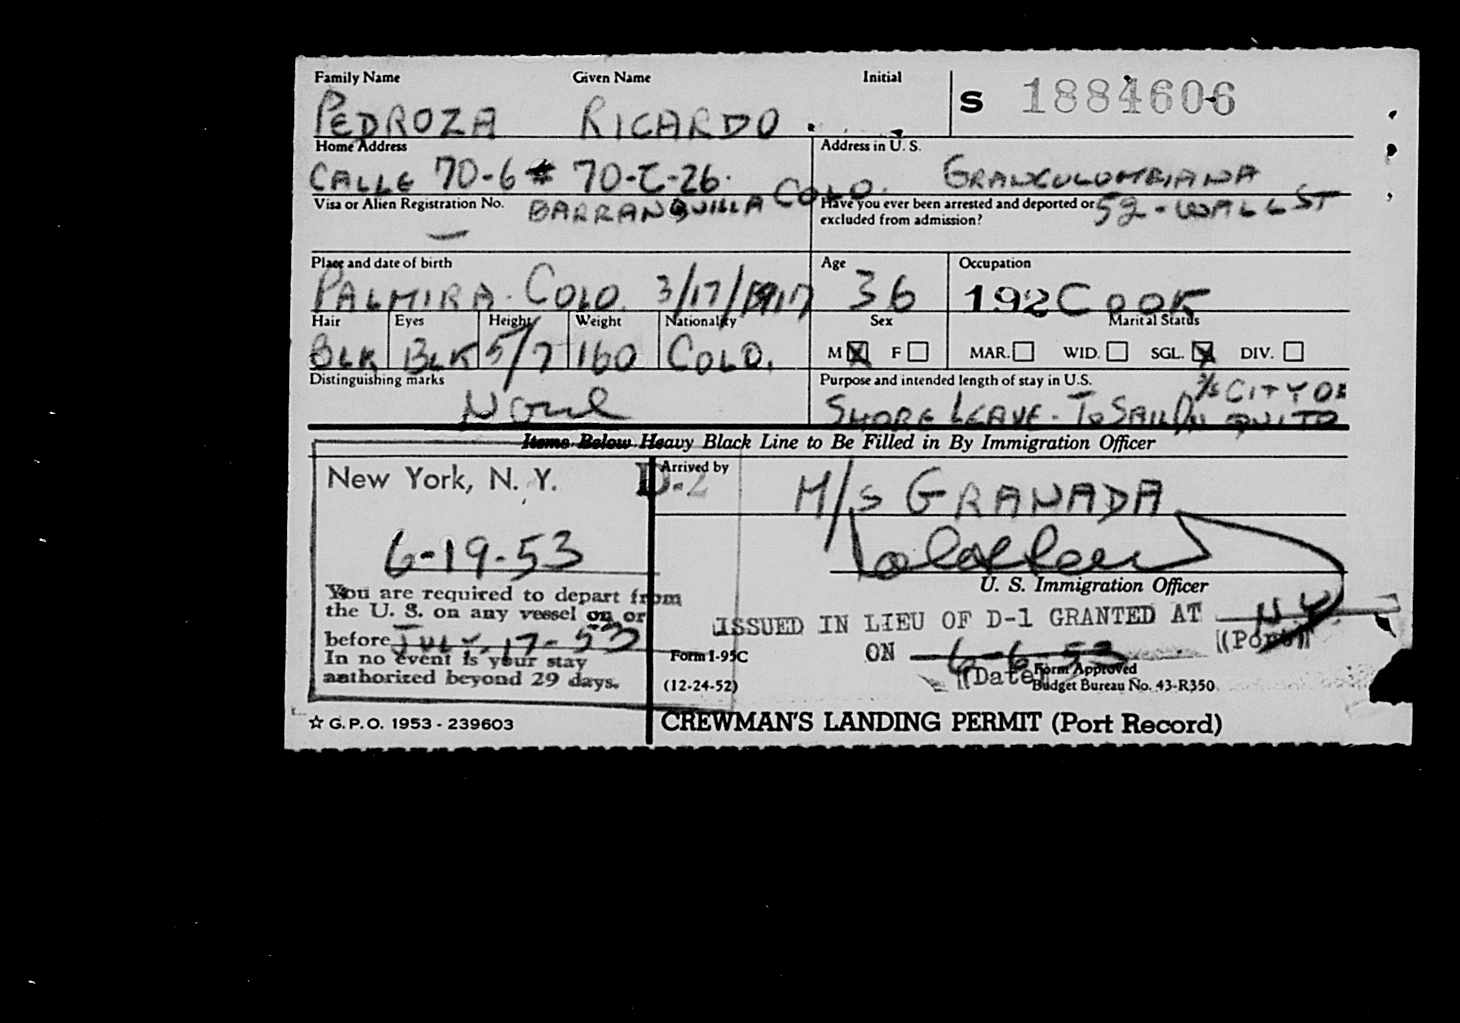 Family Name Given Name Initial
PEDROZA RICARDO
S 1884606
Home Address
CALLE 70-6 # 70-C-26.
BARRANQUILLA COLO.
Address in U. S.
GRANCOLOMBIANA
52 - WALL ST
Visa or Alien Registration No.
—
Have you ever been arrested and deported or
excluded from admission?
Place and date of birth
PALMIRA - COLO. 3/17/1917
Age
36
Occupation
192 COOK
Hair Eyes Height Weight Nationality
BLK BLK 5/7 160 COLO.
Sex
M X F
Marital Status
MAR. WID. SGL. X DIV.
Distinguishing marks
None
Purpose and intended length of stay in U.S.
SHORE LEAVE - TO SAIL ON
M/S CITY OF
QUITO
Items Below Heavy Black Line to Be Filled in By Immigration Officer
New York, N. Y.
6-19-53
You are required to depart from
the U. S. on any vessel on or
before JULY. 17-53
In no event is your stay
authorized beyond 29 days.
D-2
Arrived by
M/S GRANADA
U. S. Immigration Officer
ISSUED IN LIEU OF D-1 GRANTED AT N.Y.
(Port)
ON 6-6-53
(Date)
Form I-95C
(12-24-52)
Form Approved
Budget Bureau No. 43-R350
☆ G.P.O. 1953 - 239603
CREWMAN'S LANDING PERMIT (Port Record)